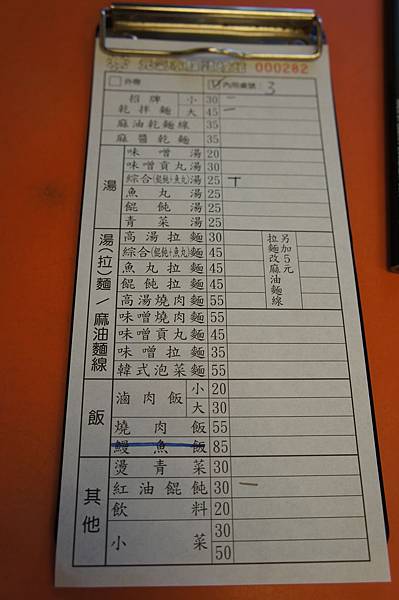 000282
外帶 ✓ 內用桌號: 3
招牌乾拌麵 小 30 二
大 45 一
麻油乾麵線 35
麻醬乾麵 35
湯
味噌湯 20
味噌貢丸湯 30
綜合(餛飩+魚丸)湯 25 T
魚丸湯 25
餛飩湯 25
青菜湯 25
湯(拉)麵/麻油麵線
高湯拉麵 30
綜合(餛飩+魚丸)麵 45
魚丸拉麵 45
餛飩拉麵 45
高湯燒肉麵 55
味噌燒肉麵 55
味噌貢丸麵 45
味噌拉麵 35
韓式泡菜麵 55
另加5元
拉麵改麻油麵線
飯
滷肉飯 小 20
大 30
燒肉飯 55
鰻魚飯 85
其他
燙青菜 30
紅油餛飩 30 一
飲料 20
小菜 30
50